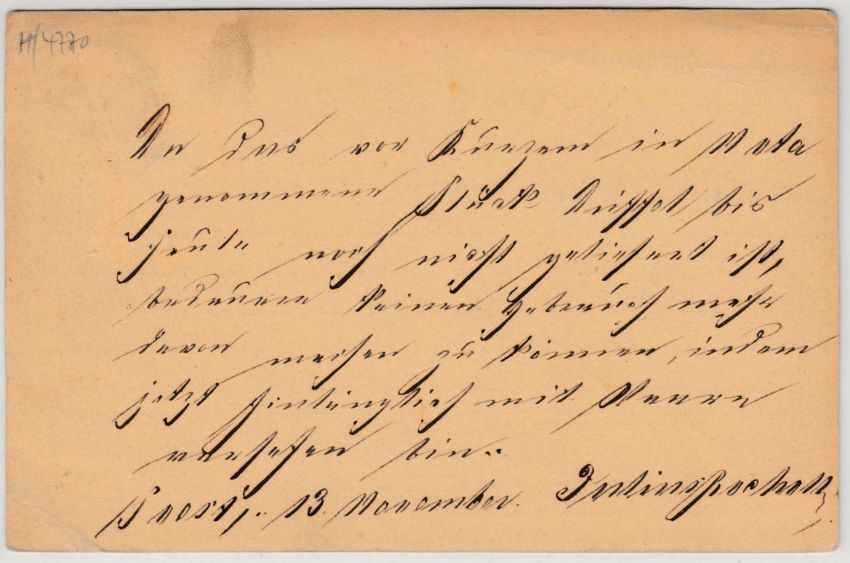 H/4770
Da das vor Kurzem in Nota
genommene Stück Düffel bis
heute noch nicht geliefert ist,
bedauere keinen Gebrauch mehr
davon machen zu können, indem
jetzt hinlänglich mit Waare
versehen bin.
Soest, 13 November.